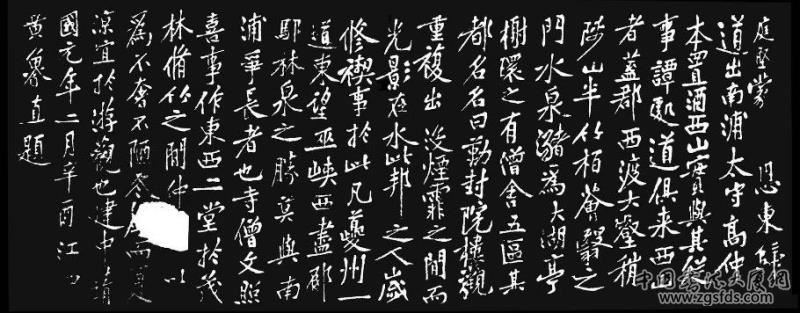 庭堅蒙 恩東歸
道出南浦太守高仲
本置酒西山實與其從
事譚處道俱來西山
者蓋郡西渡大壑稍
陟山半竹栢薈翳之
間水泉瀦爲大湖亭
榭環之有僧舍五區其
都名名曰勒封院樓觀
重複出没煙霏之間而
光影在水此邦之人歲
修禊事於此凡夔州一
道東望巫峽西盡郁
鄢林泉之勝莫與南
浦爭長者也寺僧文照
喜事作東西二堂於茂
林脩竹之間仲以
爲不奢不陋冬而夏
涼宜於游觀也建中靖
國元年二月辛酉江
黃魯直題
中国书法大展网
www.zgsfds.com